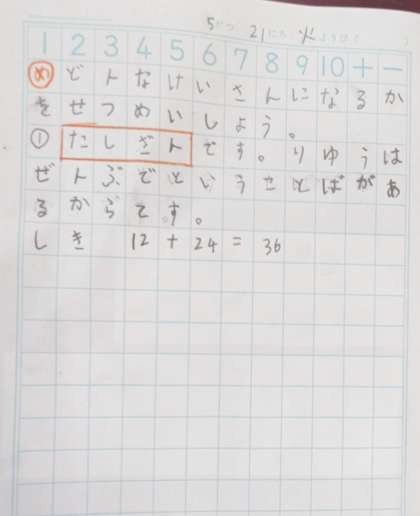 5がつ 21にち 火ようび
1 2 3 4 5 6 7 8 9 10 + −
め どんなけいさんになるか
をせつめいしよう。
① たしざんです。りゆうは
ぜんぶでというせとばがあ
るからです。
しき 12+24=36